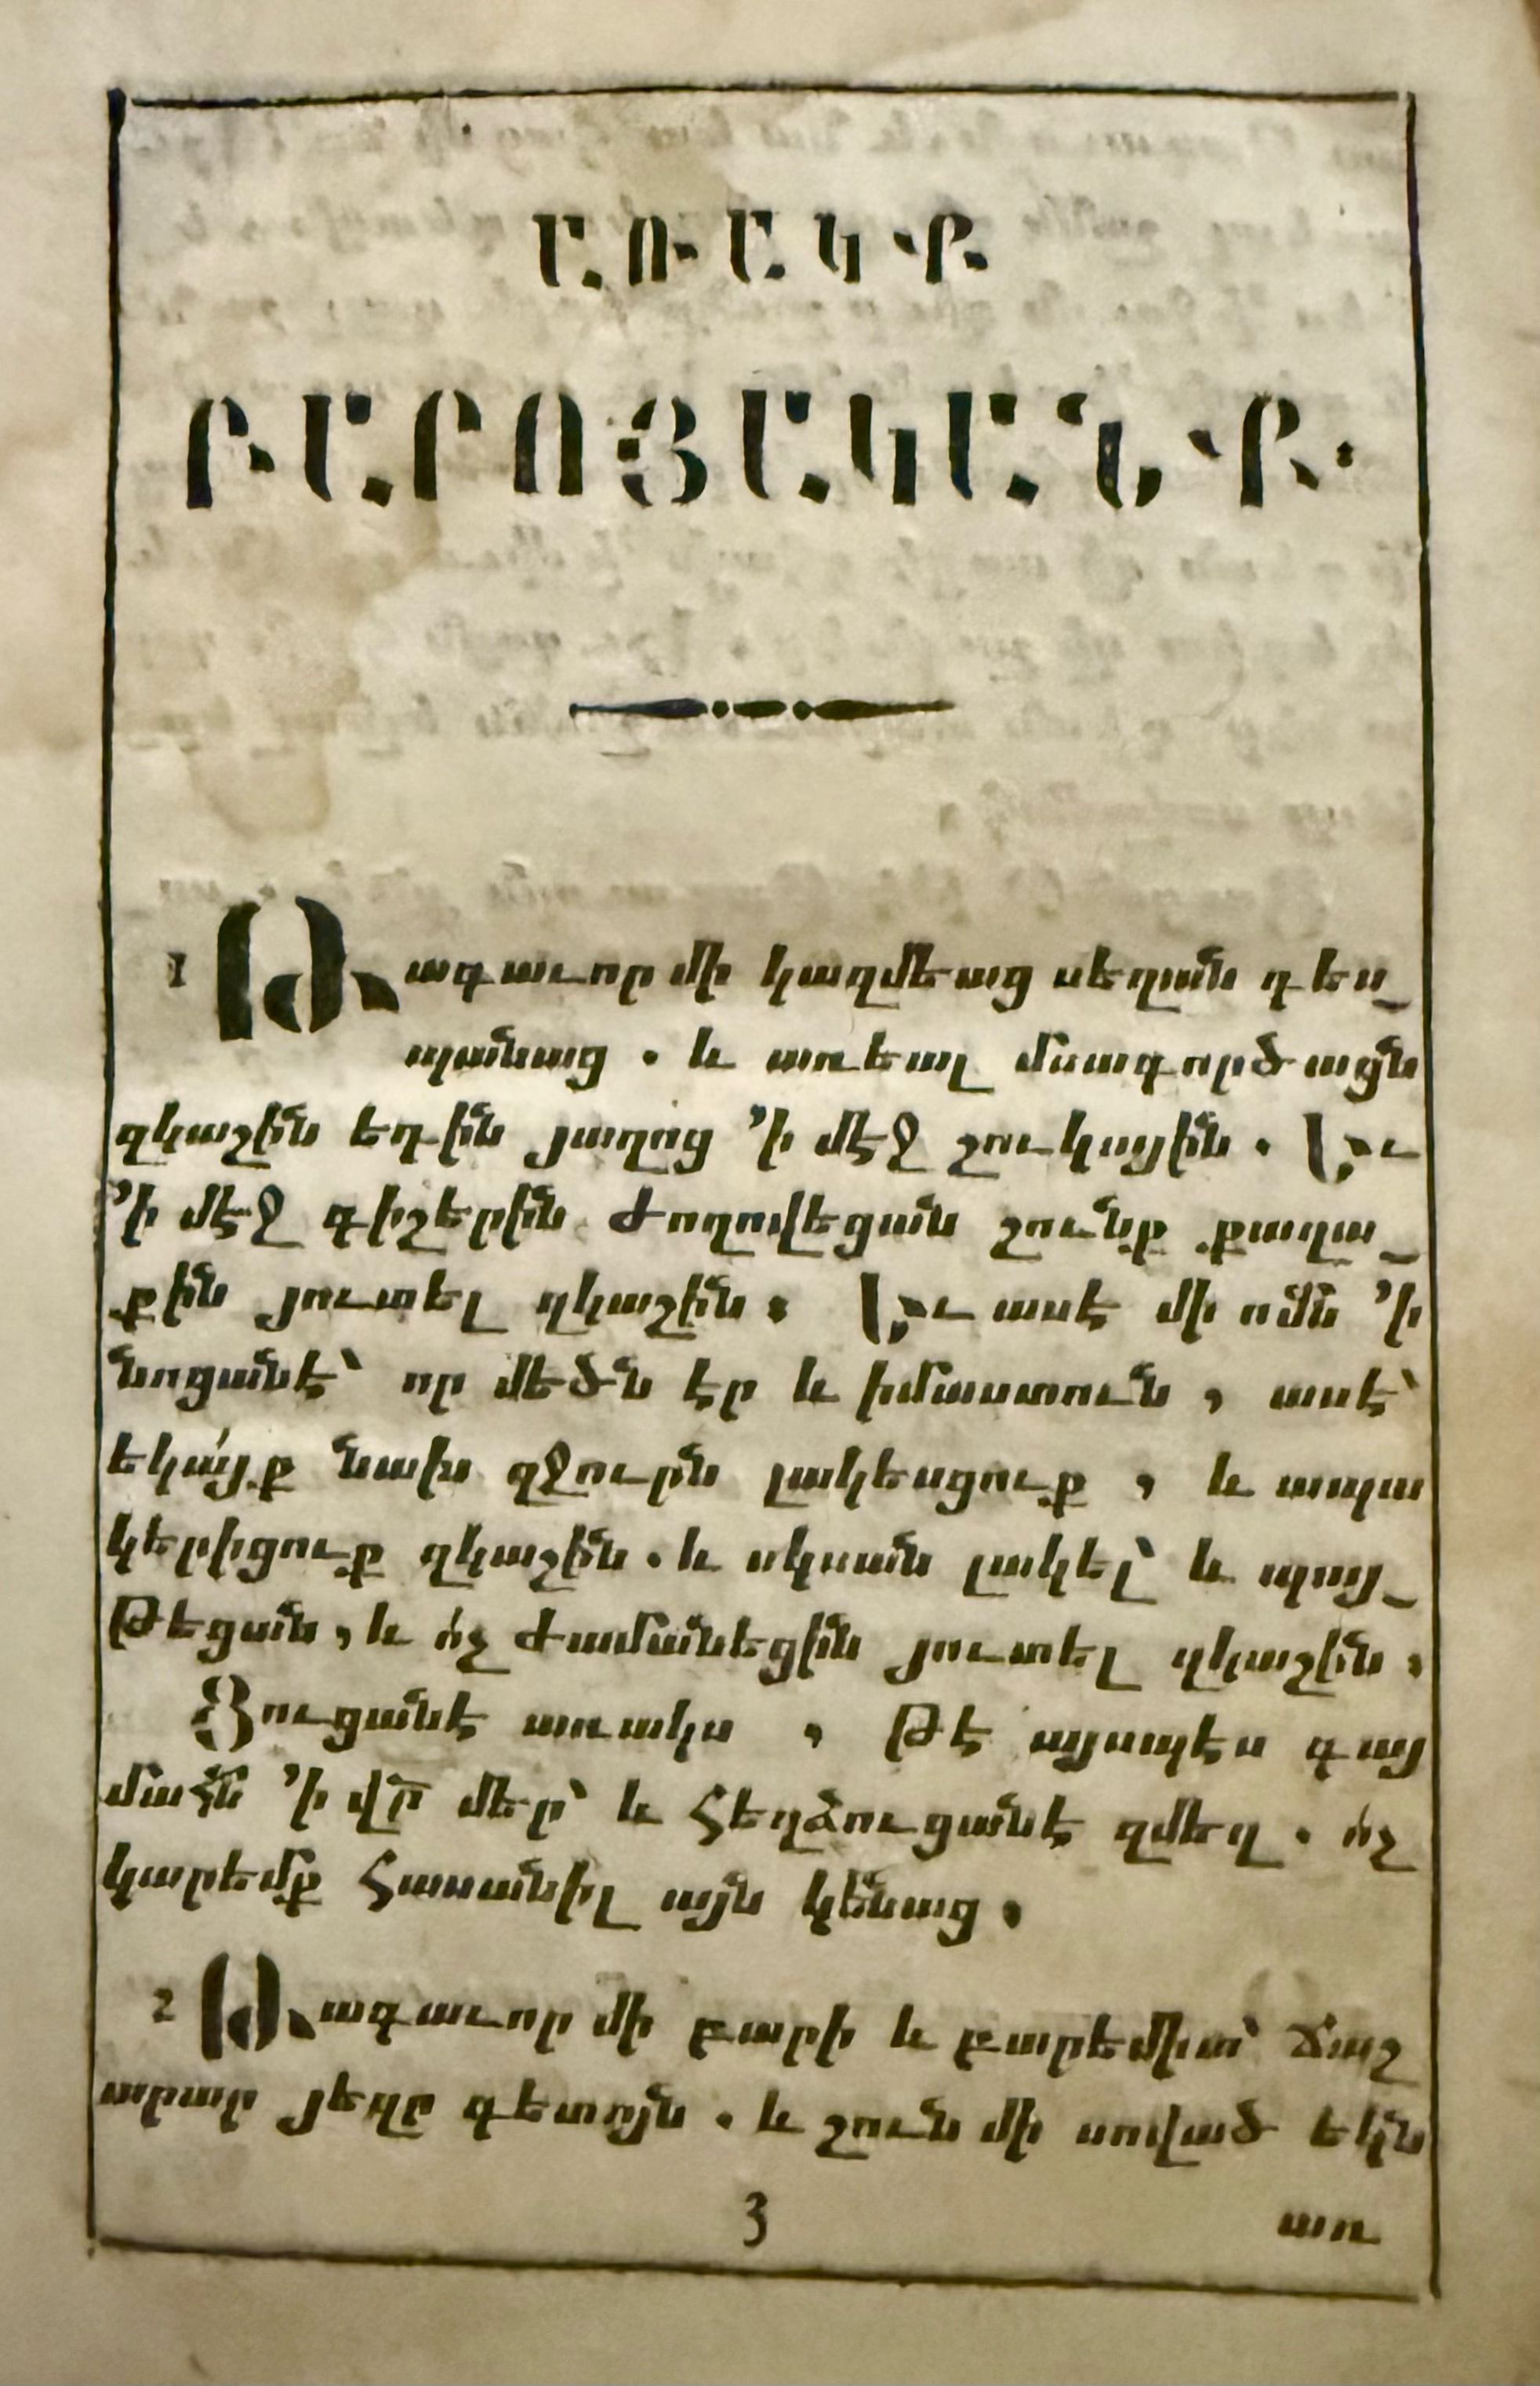 ԱՌԱԿՔ
ԲԱՐՈՅԱԿԱՆՔ.
1 Թագաւոր մի կազմեաց սեղան դես֊
պանաց . և առեալ մսագործացն
զկաշին եդին յաղոց ՚ի մէջ շուկային . Եւ
՚ի մէջ գիշերին ժողովեցան շունք քաղա֊
քին յուտել զկաշին ։ Եւ ասէ մի ոմն ՚ի
նոցանէ՝ որ մեծն էր և իմաստուն , ասէ՝
եկա՛յք նախ զջուրն լակեսցուք , և ապա
կերիցուք զկաշին . և սկսան լակել՝ և պայ֊
թեցան , և ո՛չ ժամանեցին յուտել զկաշին ,
Ցուցանէ առակս , թէ այսպէս գայ
մահն ՚ի վր մեր՝ և հեղձուցանէ զմեզ . ո՛չ
կարեմք հասանիլ այն կենաց ,
2 Թագաւոր մի բարի և բարեմիտ՝ ճաշ
արար յեզր գետոյն . և շուն մի սոված եկն
3
առ